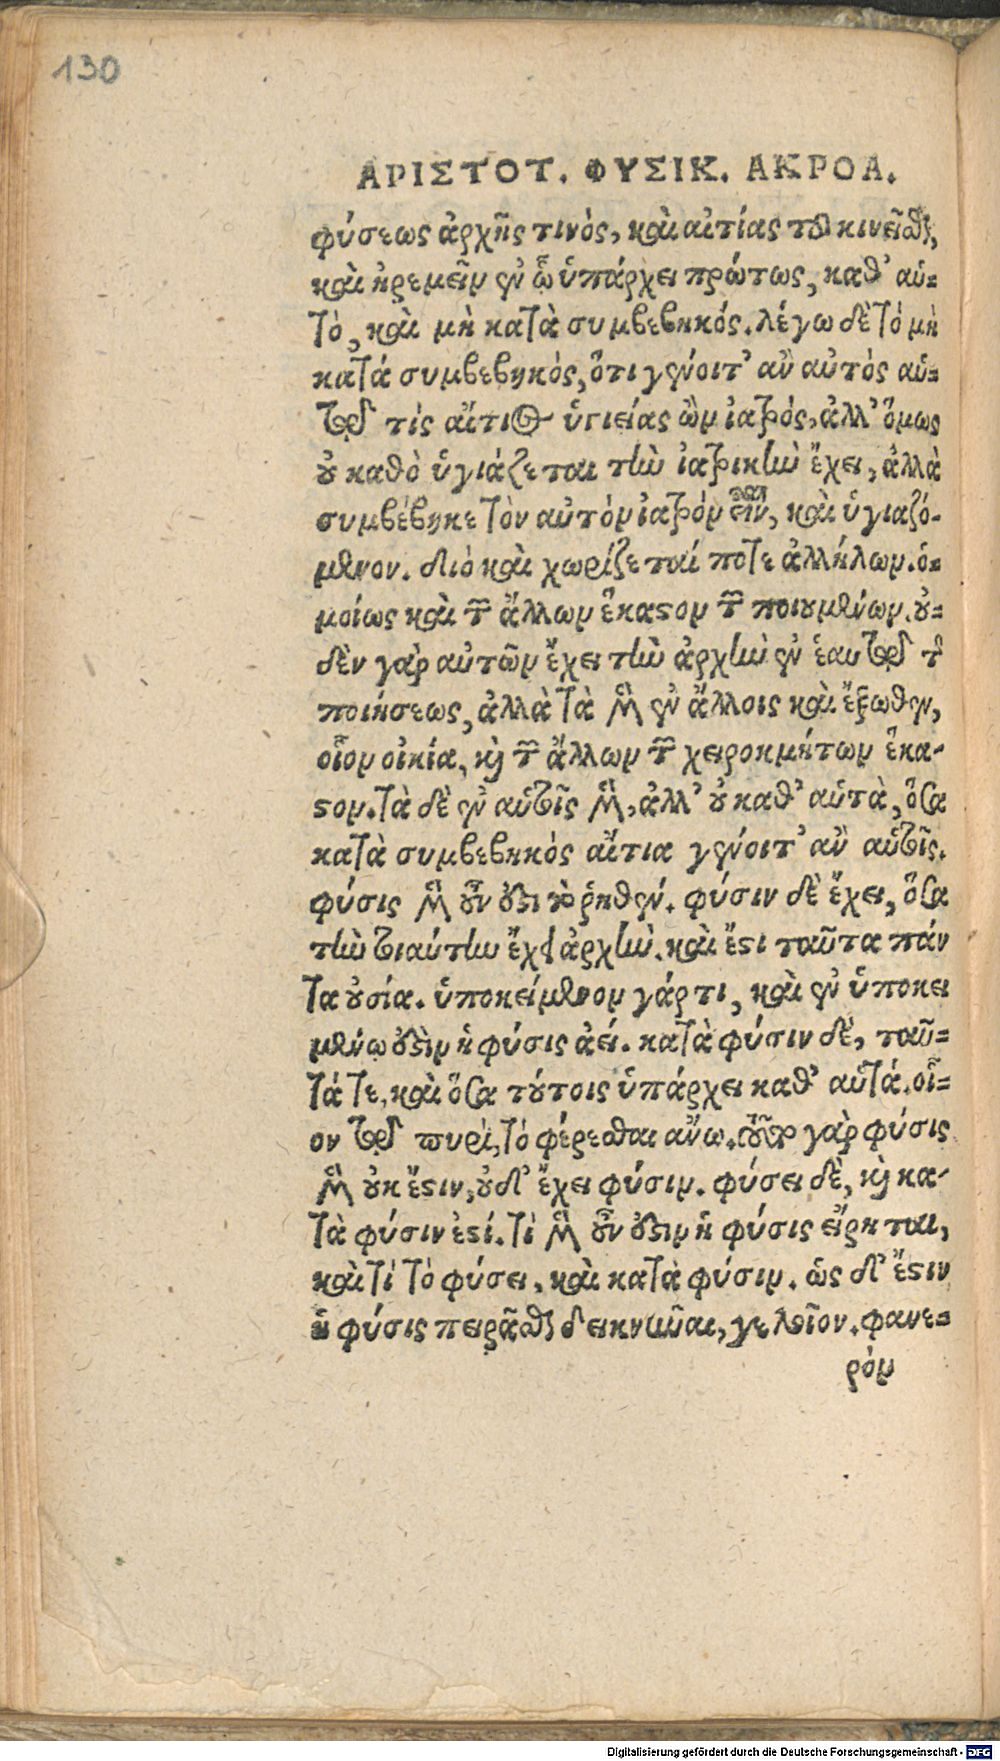 130
ΑΡΙΣΤΟΤ. ΦΥΣΙΚ. ΑΚΡΟΑ.
φύσεως ἀρχῆς τινὸς, καὶ αἰτίας τοῦ κινεῖσθαι,
καὶ ἠρεμεῖν ἐν ᾧ ὑπάρχει πρώτως, καθ' αὑ-
τὸ, καὶ μὴ κατὰ συμβεβηκός. λέγω δὲ τὸ μὴ
κατά συμβεβηκὸς, ὅτι γένοιτ' ἂν αὐτὸς αὑ-
τῷ τίς αἴτιος ὑγιείας ὢν ἰατρός, ἀλλ' ὅμως
οὐ καθὸ ὑγιάζεται τὴν ἰατρικὴν ἔχει, ἀλλὰ
συμβέβηκε τὸν αὐτὸν ἰατρόν εἶναι, καὶ ὑγιαζό-
μενον. διὸ καὶ χωρίζεταί ποτε ἀλλήλων. ὁ-
μοίως καὶ τῶν ἄλλων ἕκαστον τῶν ποιουμένων. οὐ-
δὲν γὰρ αὐτῶν ἔχει τὴν ἀρχὴν ἐν ἑαυτῷ τῆς
ποιήσεως, ἀλλὰ τὰ μὲν ἐν ἄλλοις καὶ ἔξωθεν,
οἷον οἰκία, καὶ τῶν ἄλλων τῶν χειροκμήτων ἕκα-
στον. τὰ δὲ ἐν αὑτοῖς μὲν, ἀλλ' οὐ καθ' αὑτὰ, ὅσα
κατὰ συμβεβηκὸς αἴτια γένοιτ' ἂν αὑτοῖς.
φύσις μὲν οὖν ἐστι τὸ ῥηθέν. φύσιν δὲ ἔχει, ὅσα
τὴν τοιαύτην ἔχει ἀρχήν. καὶ ἔστι ταῦτα πάν
τα οὐσία. ὑποκείμενον γάρ τι, καὶ ἐν ὑποκει
μένῳ ἐστὶν ἡ φύσις ἀεί. κατὰ φύσιν δὲ, ταῦ-
τά τε, καὶ ὅσα τούτοις ὑπάρχει καθ' αὑτά. οἷ-
ον τῷ πυρὶ, τὸ φέρεσθαι ἄνω. τοῦτο γὰρ φύσις
μὲν οὐκ ἔστιν, οὐδ' ἔχει φύσιν. φύσει δὲ, καὶ κα-
τὰ φύσιν ἐστί. τί μὲν οὖν ἐστὶν ἡ φύσις εἴρηται,
καὶ τί τὸ φύσει, καὶ κατὰ φύσιν. ὡς δ' ἔστιν
ἡ φύσις πειρᾶσθαι δεικνύναι, γελοῖον. φανε-
ρόν
Digitalisierung gefördert durch die Deutsche Forschungsgemeinschaft - DFG